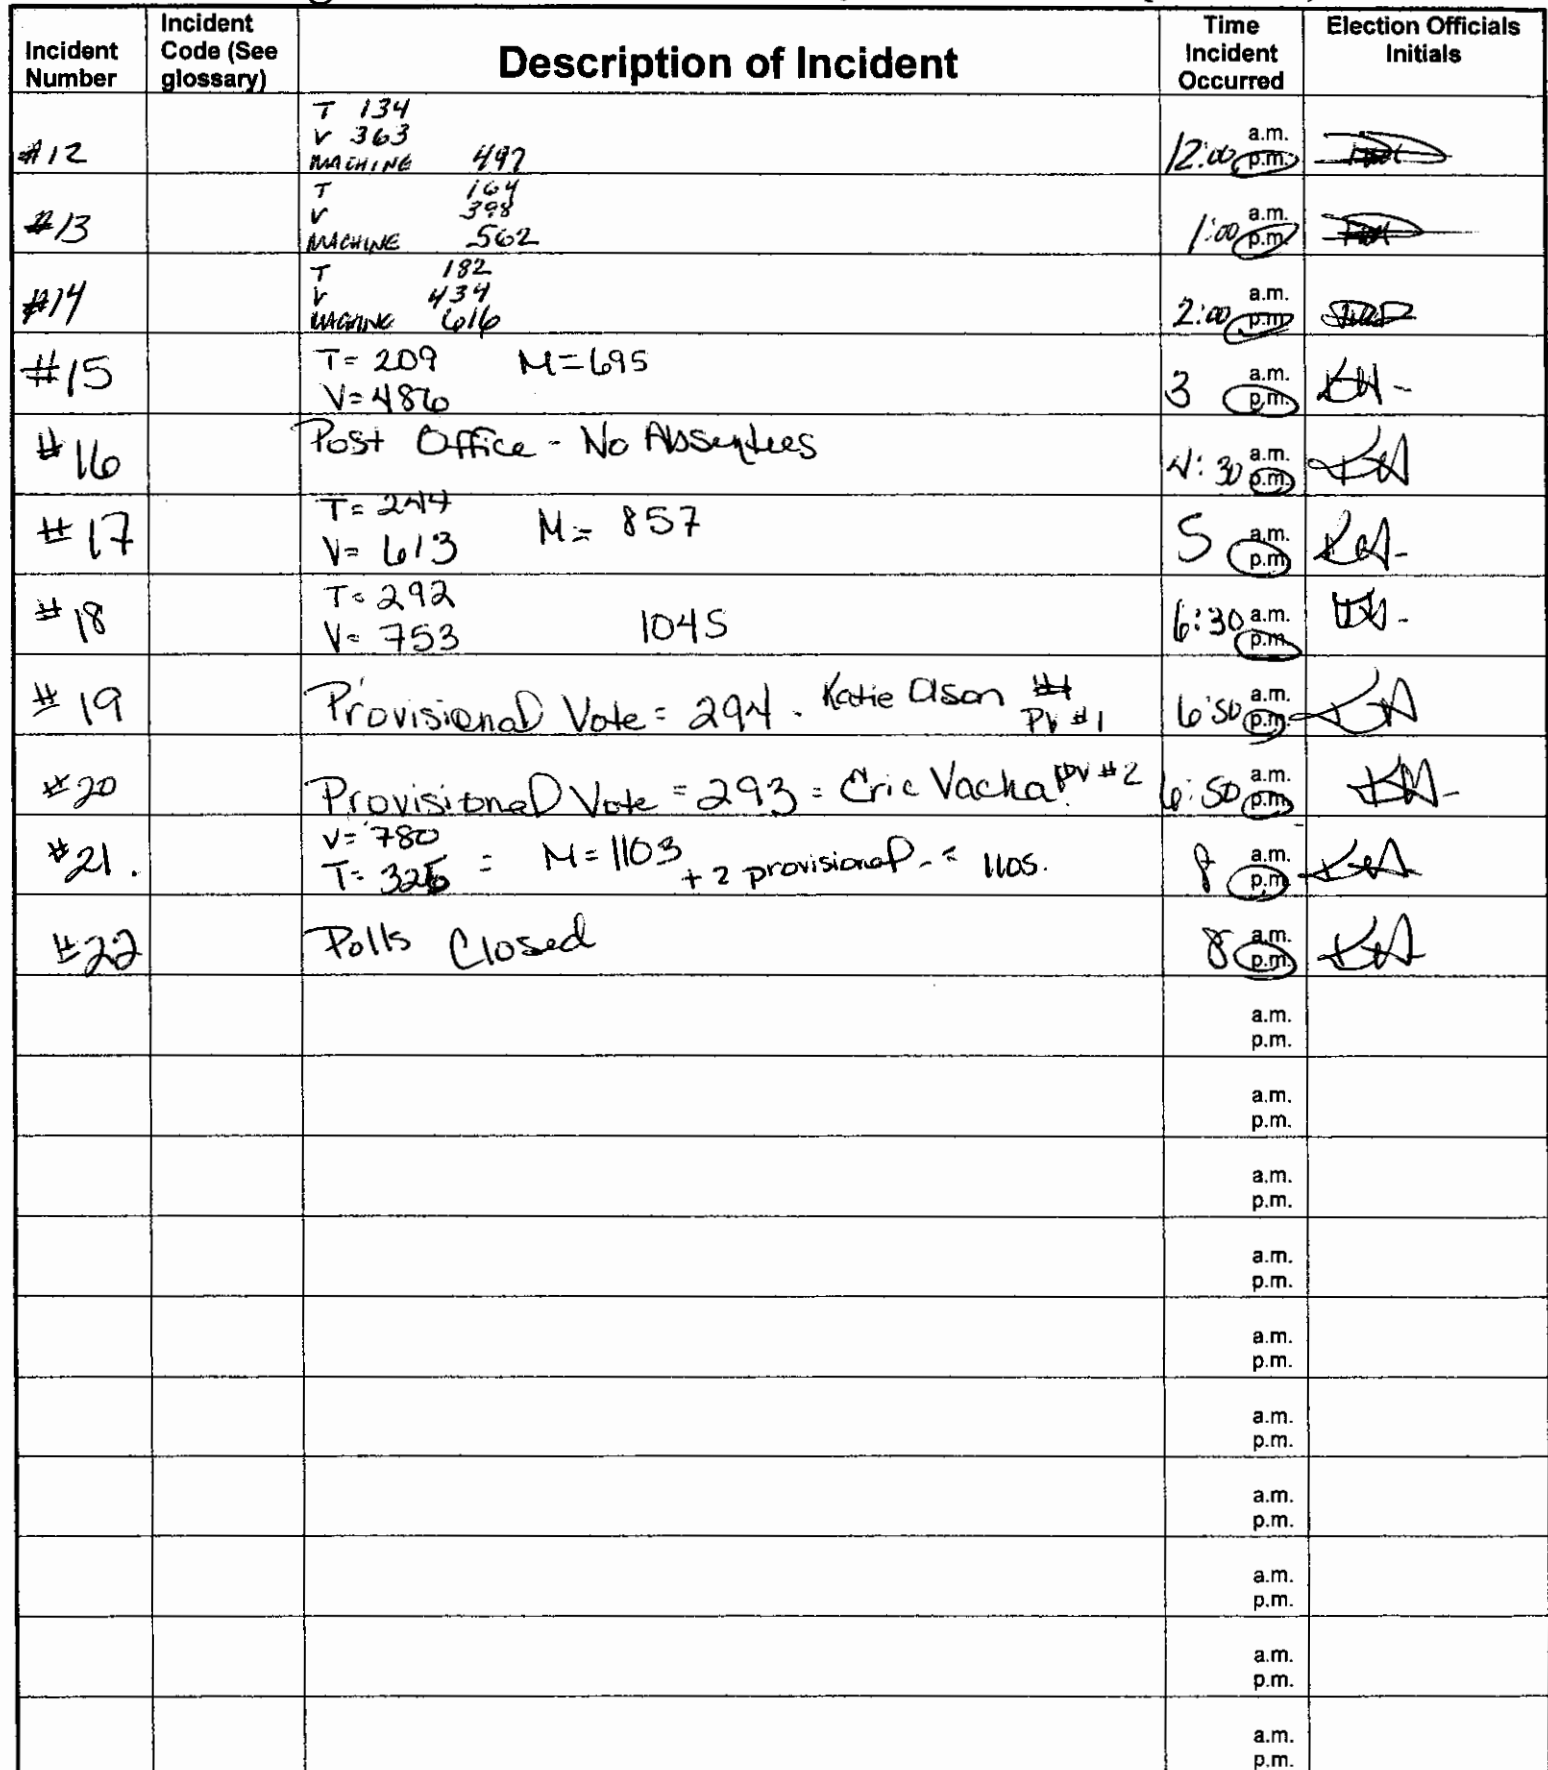 Incident Number
Incident Code (See glossary)
Description of Incident
Time Incident Occurred
Election Officials Initials
#12
T 134
V 363
MACHINE 497
12:00 a.m. p.m.
#13
T 164
V 398
MACHINE 562
1:00 a.m. p.m.
#14
T 182
V 434
MACHINE 616
2:00 a.m. p.m.
#15
T= 209 M=695
V=486
3 a.m. p.m.
#16
Post Office - No Absentees
4:30 a.m. p.m.
#17
T= 244
V= 613 M= 857
5 a.m. p.m.
#18
T= 292
V= 753 1045
6:30 a.m. p.m.
#19
Provisional Vote = 294. Katie Olson
PV #1
6:50 a.m. p.m.
#20
Provisional Vote = 293 = Eric Vacha PV #2
6:50 a.m. p.m.
#21.
V= 780
T= = M=1103 + 2 provisional - = 1105.
a.m. p.m.
#22
Polls Closed
8 a.m. p.m.
a.m.
p.m.
a.m.
p.m.
a.m.
p.m.
a.m.
p.m.
a.m.
p.m.
a.m.
p.m.
a.m.
p.m.
a.m.
p.m.
a.m.
p.m.
a.m.
p.m.